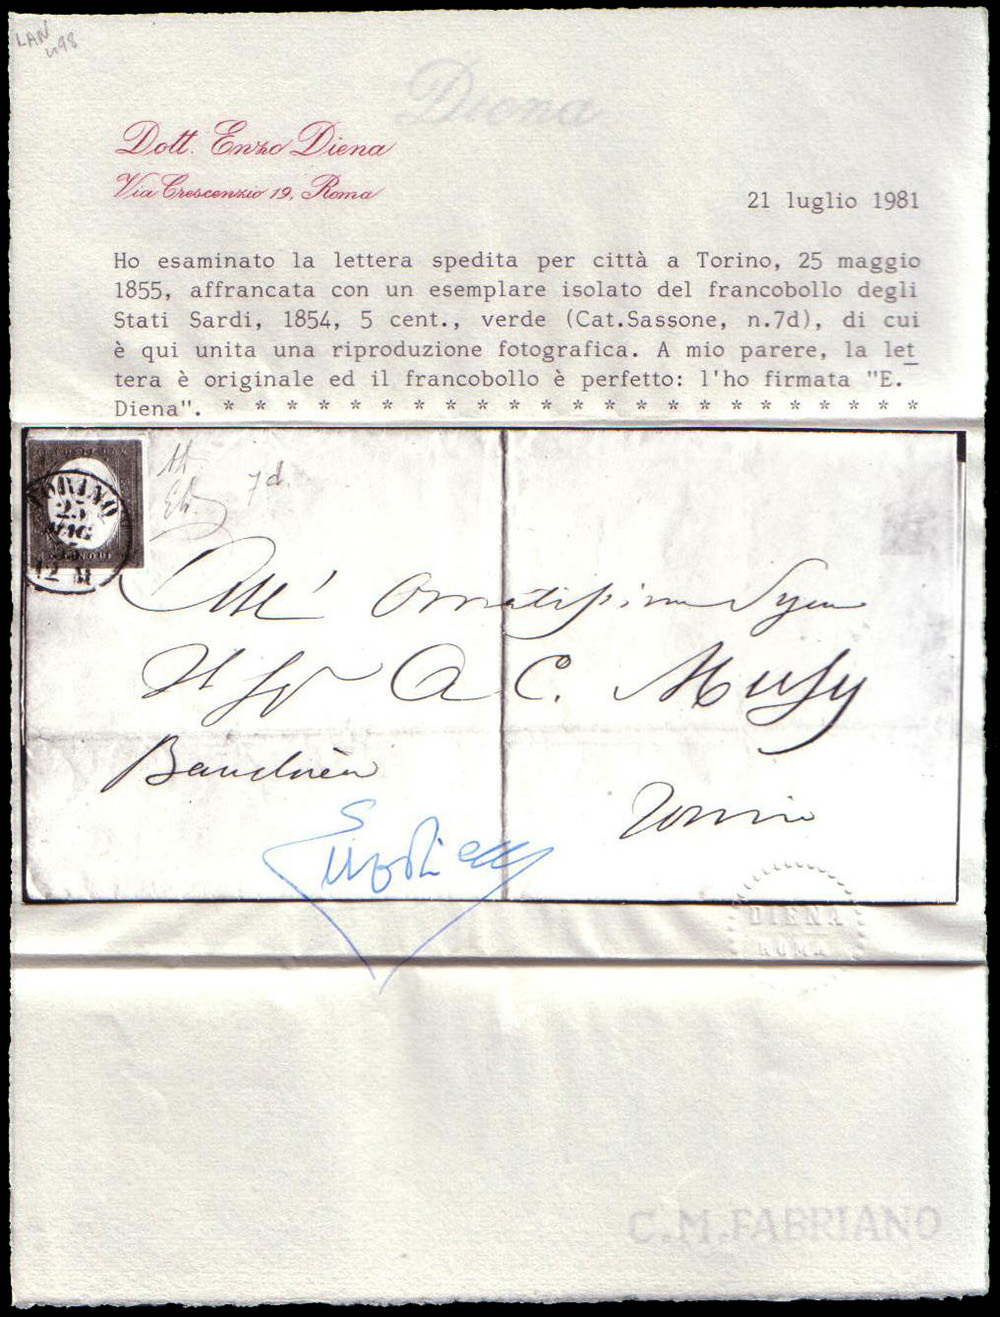 LAN
Diena
Dott. Enzo Diena
Via Crescenzio 19, Roma
21 luglio 1981
Ho esaminato la lettera spedita per città a Torino, 25 maggio
1855, affrancata con un esemplare isolato del francobollo degli
Stati Sardi, 1854, 5 cent., verde (Cat.Sassone, n.7d), di cui
è qui unita una riproduzione fotografica. A mio parere, la let
tera è originale ed il francobollo è perfetto: l'ho firmata "E.
Diena". * * * * * * * * * * * * * * * * * * * * * * *
7d
TORINO
25
MAG
12 M
All' Ornatissimo Sigr
Il Sigr A C. Musy
Torino
DIENA
ROMA
C.M.FABRIANO